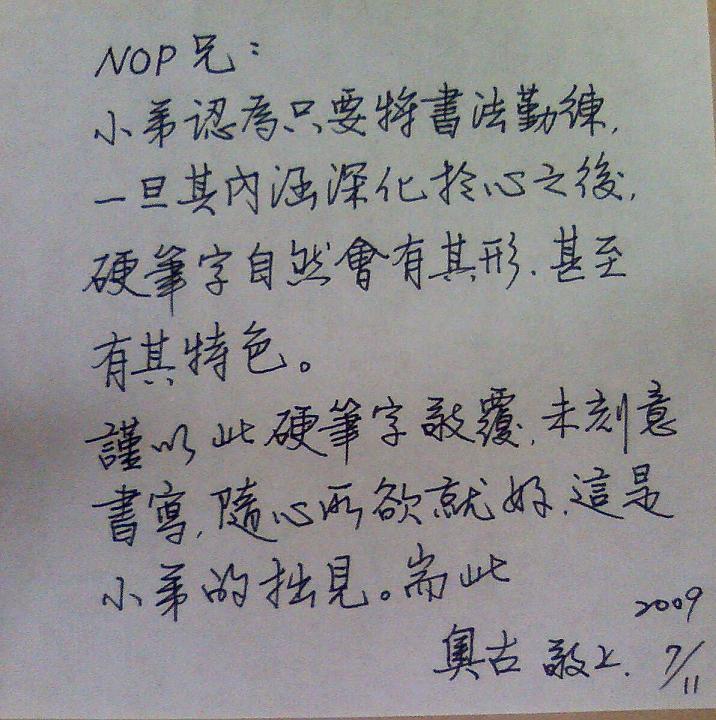 NOP兄：
小弟認為只要將書法勤練，
一旦其內涵深化於心之後，
硬筆字自然會有其形．甚至
有其特色。
謹以此硬筆字敬覆，未刻意
書寫，隨心所欲就好，這是
小弟的拙見。耑此
奧古 敬上． 2009
7/11